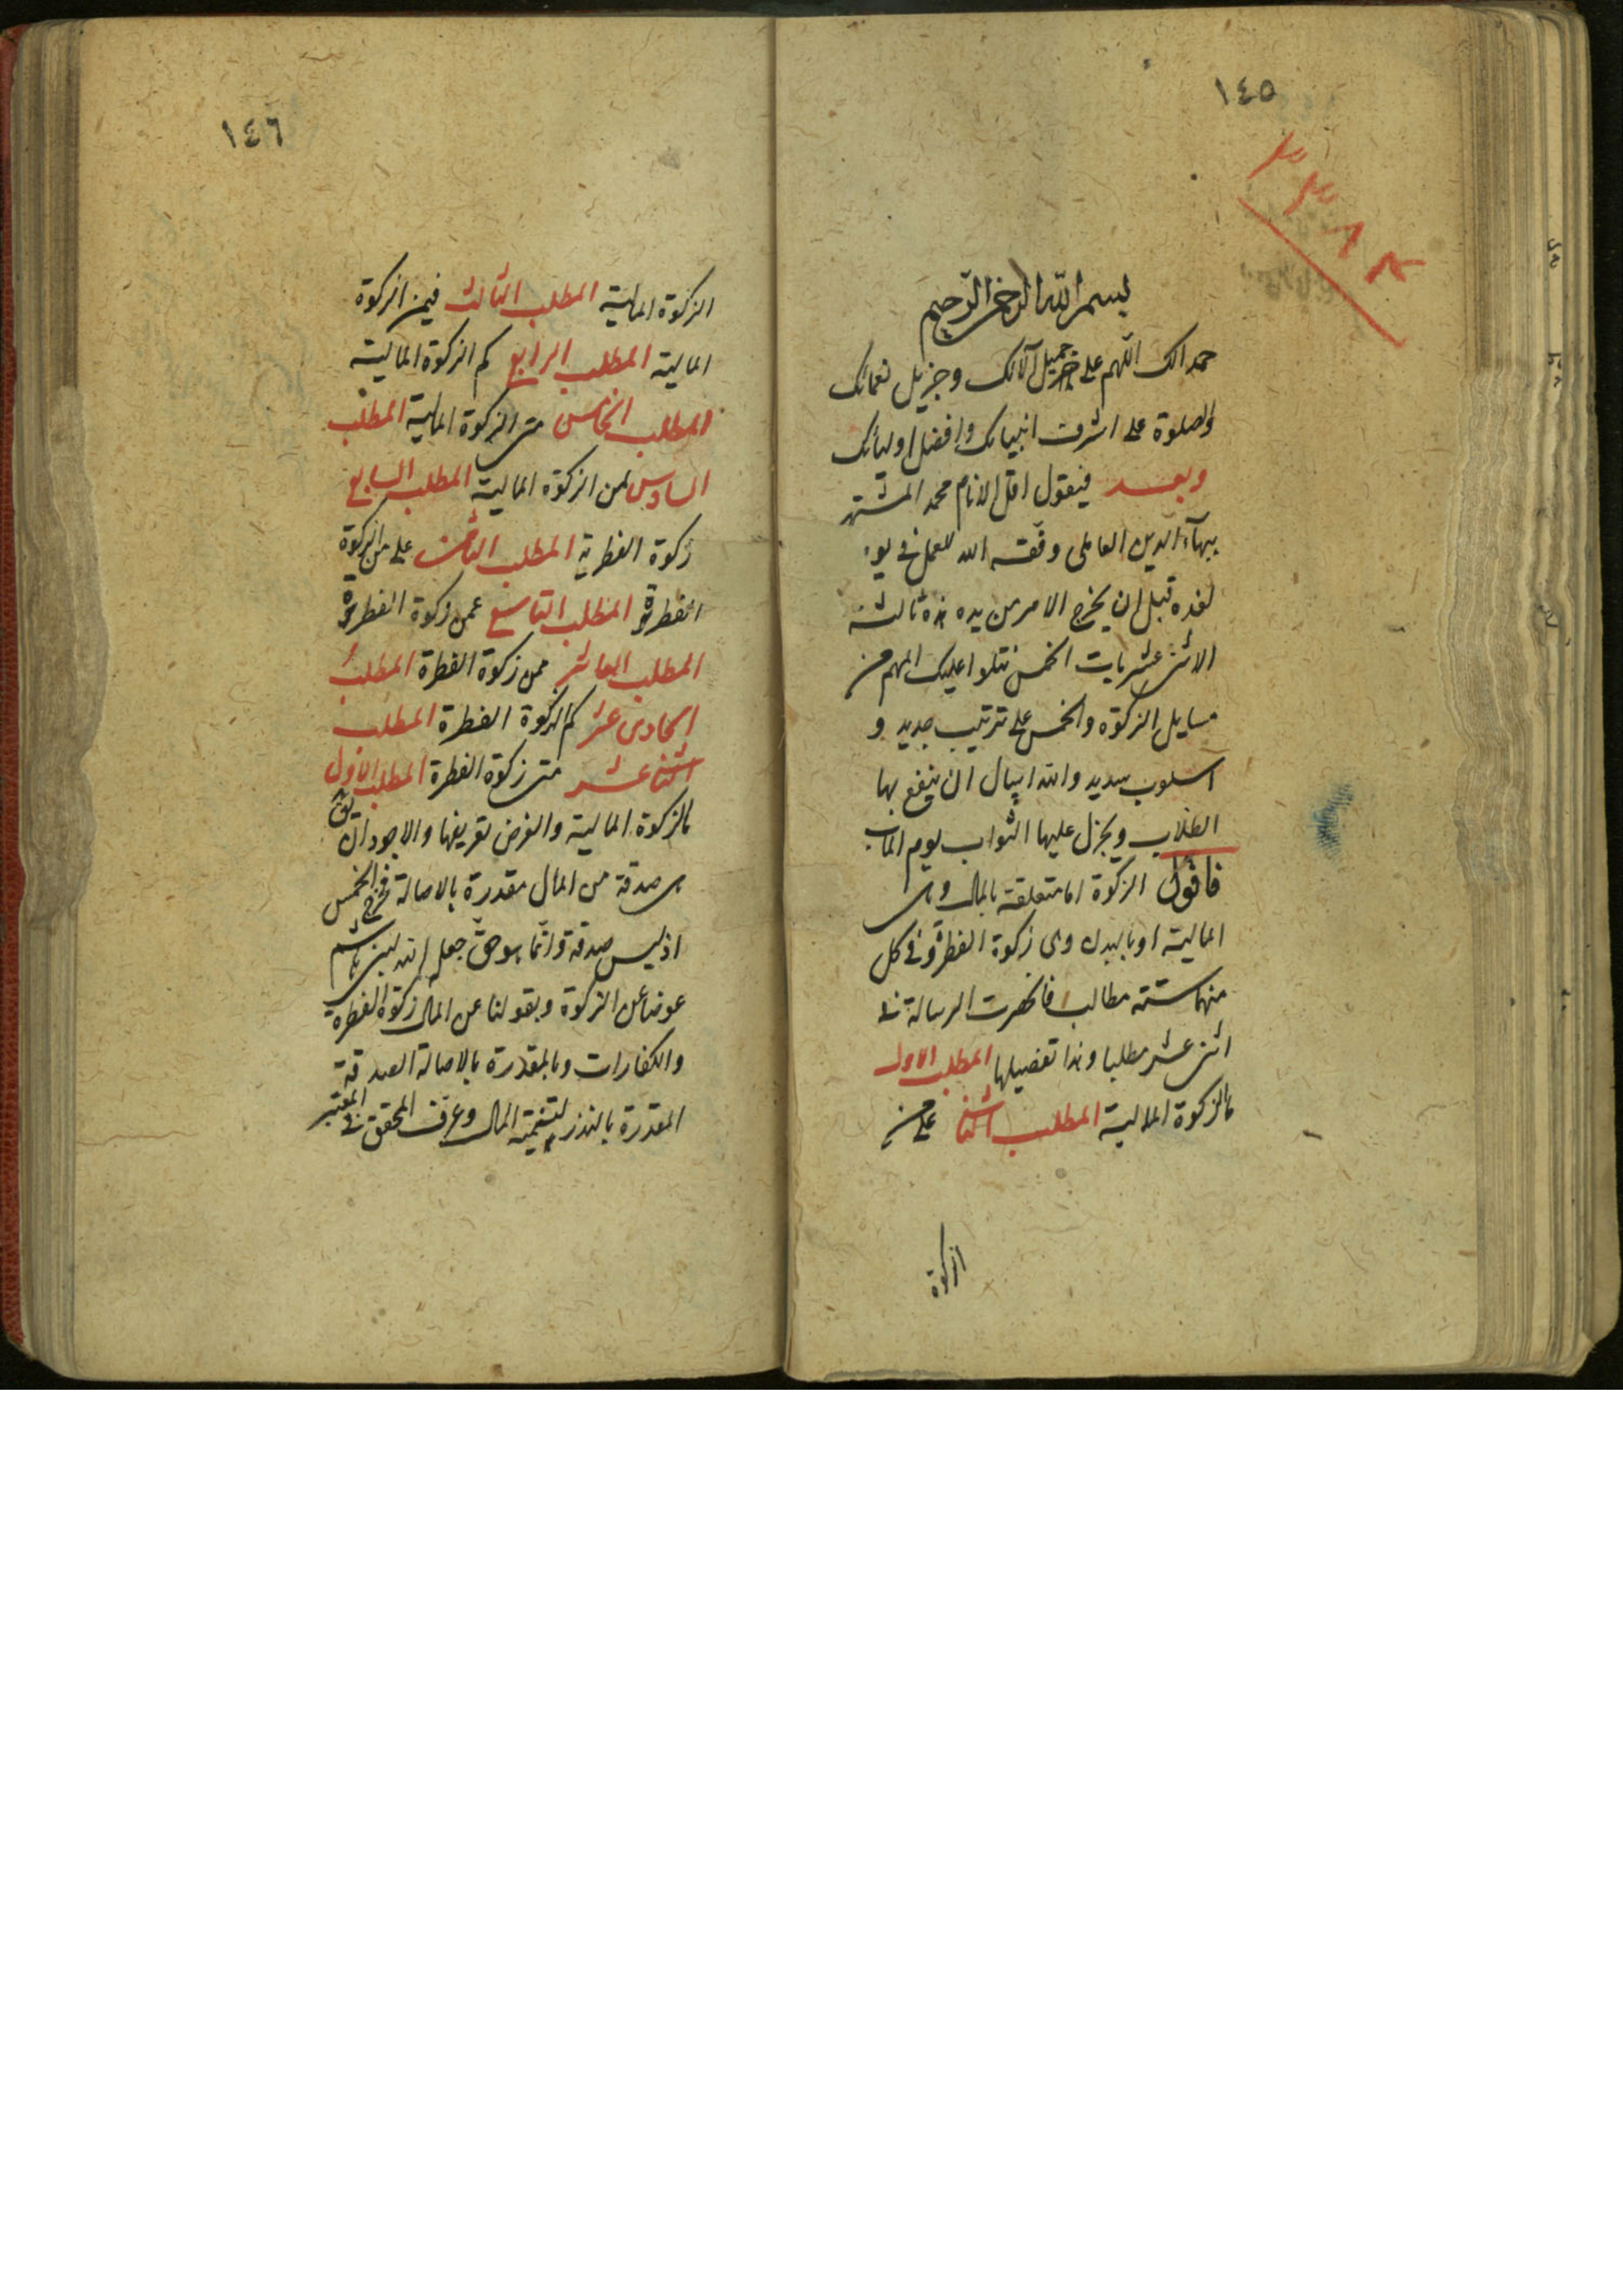 ١٤٥
بسم الله الرحمن الرحيم
حمدا لك اللهم على جميل آلائك وجزيل نعمائك
والصلوة على اشرف انبيائك وافضل اوليائك
وبعد فيقول اقل الانام محمد المشتهر
ببهآء الدين العاملى وفقه الله للعمل فى يومه
لغده قبل ان يخرج الامر من يده هذه ثالثة
الاثنى عشريات الخمس نتلوا عليك المهم من
مسايل الزكوة والخمس على ترتيب جديد و
اسلوب سديد والله اسال ان ينفع بها
الطلاب ويجزل عليها الثواب يوم المآب
فاقول الزكوة اما متعلقة بالمال وهى
المالية او بالبدن وهى زكوة الفطرة وفى كل
منهما ستة مطالب فانحصرت الرسالة فى
اثنى عشر مطلبا وهذا تفصيلها المطلب الاول
ما الزكوة المالية المطلب الثانى على من
الزكوة
١٤٦
الزكوة المالية المطلب الثالث فيمن الزكوة
المالية المطلب الرابع كم الزكوة المالية
المطلب الخامس متى الزكوة المالية المطلب
السادس لمن الزكوة المالية المطلب السابع
زكوة الفطرية المطلب الثامن على من الزكوة
الفطرة المطلب التاسع عمن زكوة الفطرة
المطلب العاشر ممن زكوة الفطرة المطلب
الحادى عشر كم الزكوة الفطرة المطلب
الثنا عشر متى زكوة الفطرة المطلب الاول
ما الزكوة المالية والغرض تعريفها والاجود ان يق
هى صدقة من المال مقدرة بالاصالة فخرج الخمس
اذ ليس صدقة وانما هو حق جعله الله لبنى هاشم
عوضا عن الزكوة وبقولنا من المال زكوة الفطرة
والكفارات وبالمقدرة بالاصالة الصدقة
المقدرة بالنذر لتنمية المال وعرف المحقق فى المعتبر
٣٣٨٤